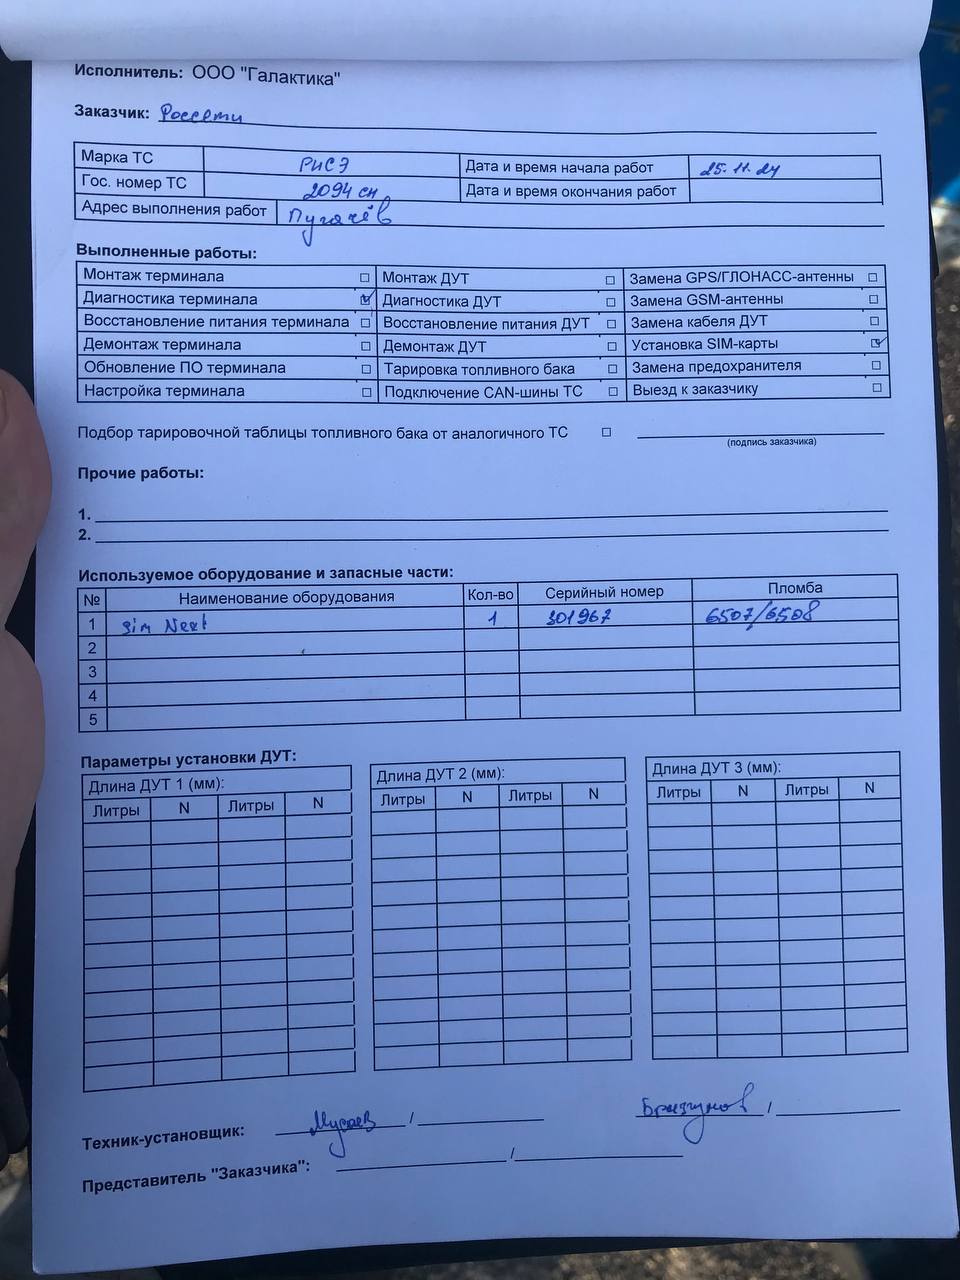 Исполнитель: ООО "Галактика"
Заказчик: Россети
Марка ТС РИСЭ Дата и время начала работ 25.11.24
Гос. номер ТС 2094 сн Дата и время окончания работ
Адрес выполнения работ Пугачёв
Выполненные работы:
Монтаж терминала ☐ Монтаж ДУТ ☐ Замена GPS/ГЛОНАСС-антенны ☐
Диагностика терминала ☑ Диагностика ДУТ ☐ Замена GSM-антенны ☐
Восстановление питания терминала ☐ Восстановление питания ДУТ ☐ Замена кабеля ДУТ ☐
Демонтаж терминала ☐ Демонтаж ДУТ ☐ Установка SIM-карты ☑
Обновление ПО терминала ☐ Тарировка топливного бака ☐ Замена предохранителя ☐
Настройка терминала ☐ Подключение CAN-шины ТС ☐ Выезд к заказчику ☐
Подбор тарировочной таблицы топливного бака от аналогичного ТС ☐
(подпись заказчика)
Прочие работы:
1.
2.
Используемое оборудование и запасные части:
№ Наименование оборудования Кол-во Серийный номер Пломба
1 sim Next 1 301967 6507/6508
2
3
4
5
Параметры установки ДУТ:
Длина ДУТ 1 (мм): Длина ДУТ 2 (мм): Длина ДУТ 3 (мм):
Литры N Литры N Литры N Литры N Литры N Литры N
Техник-установщик: Мусаев / Брызгунов /
Представитель "Заказчика": /